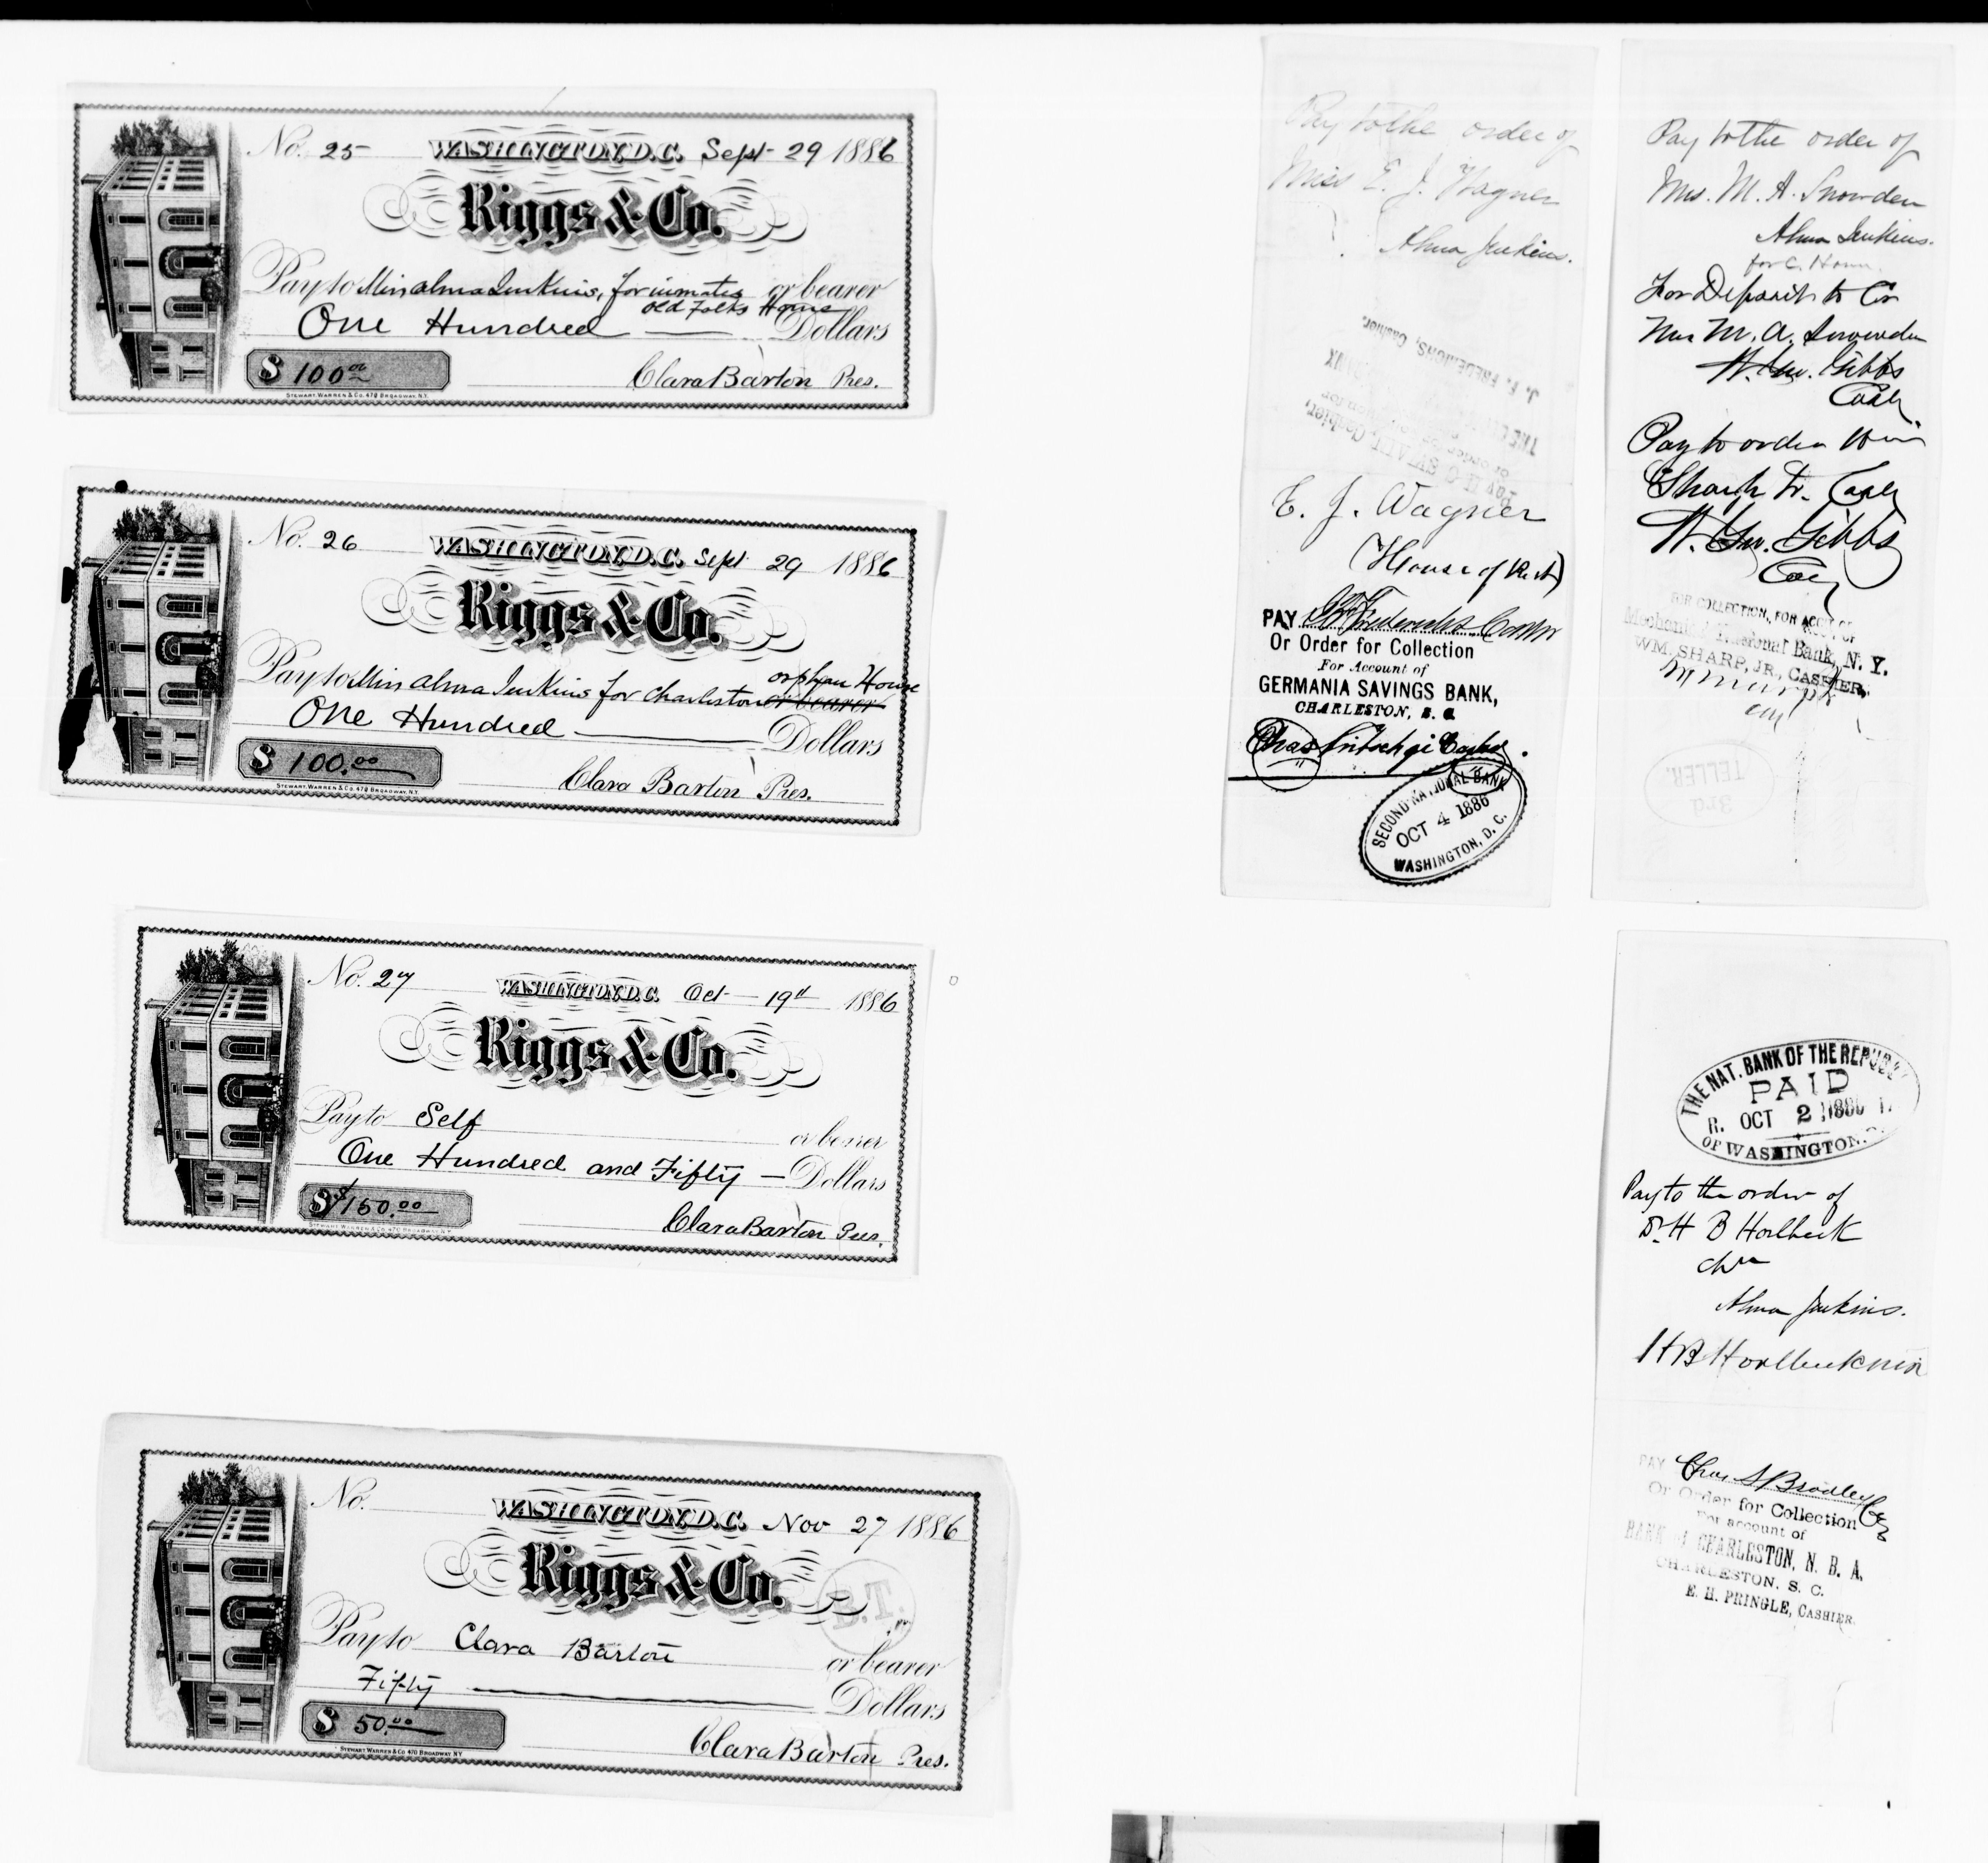 No. 25 WASHINGTON, D.C. Sept 29 1886
Riggs & Co.
Pay to Miss Alma Jenkins, for inmates or bearer
Old Folks Home
One Hundred Dollars
$ 100.00
Clara Barton Pres.
STEWART, WARREN & CO. 470 BROADWAY, N.Y.
No. 26 WASHINGTON, D.C. Sept 29 1886
Riggs & Co.
orphan House
Pay to Miss Alma Jenkins for Charleston or bearer
One Hundred Dollars
$ 100.00
Clara Barton Pres.
STEWART, WARREN & CO. 470 BROADWAY, N.Y.
No. 27 WASHINGTON, D.C. Oct 19th 1886
Riggs & Co.
Pay to Self or bearer
One Hundred and Fifty Dollars
$ 150.00
Clara Barton Pres.
STEWART WARREN & CO. 470 BROADWAY N.Y.
No. WASHINGTON, D.C. Nov 27 1886
Riggs & Co.
B.T.
Pay to Clara Barton or bearer
Fifty Dollars
$ 50.00
Clara Barton Pres.
STEWART WARREN & CO 470 BROADWAY NY
Pay to the order of
Miss E. J. Wagner
Alma Jenkins.
J. F. FREDEMONS, Cashier.
E. J. Wagner
(House of Rest)
PAY
Or Order for Collection
For Account of
GERMANIA SAVINGS BANK,
CHARLESTON, S. C.
SECOND NATIONAL BANK
OCT 4 1886
WASHINGTON, D.C.
Pay to the order of
Mrs. M. A. Snowden
Alma Jenkins.
for C. Home.
For Deposit to Cr
Mrs M. A. Snowden
Gibbs
Cash
Pay to order Wm
Sharp Jr. Cash
Gibbs
FOR COLLECTION, FOR ACCT OF
Mechanics National Bank, N. Y.
WM. SHARP, JR, CASHIER,
3rd
TELLER.
THE NAT. BANK OF THE REPUBLIC
PAID
R. OCT 2 1886
OF WASHINGTON
Pay to the order of
Dr H B Horlbeck
Chn
Alma Jenkins.
H B Horlbeck
PAY Chas S Bradley
Or Order for Collection
For account of
BANK of CHARLESTON, N. B. A.
CHARLESTON, S. C.
E. H. PRINGLE, CASHIER.